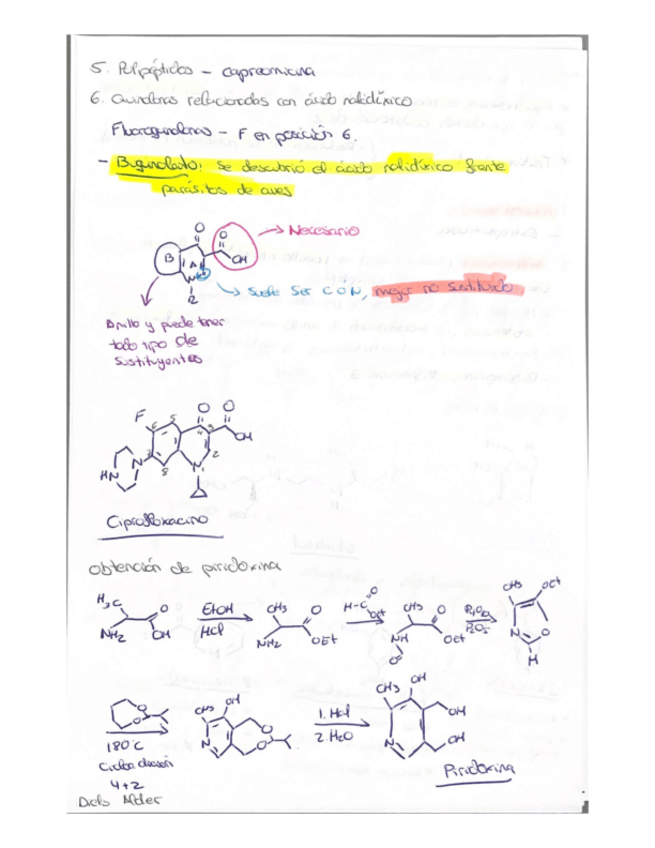 5. Polipéptidos - capreomicina
6. Quinolonas relacionadas con ácido nalidíxico
Fluoroquinolonas - F en posición 6.
- se descubrió el ácido nalidíxico frente
parásitos de aves
O
O
OH
→ Necesario
B
A
N
R
→ suele ser C o N, mejor no sustituido
Anillo y puede tener
todo tipo de
sustituyentes
F
6
5
O
O
4
3
OH
7
2
8
N
1
N
HN
Ciprofloxacino
Obtención de piridoxina
H3C
O
NH2
OH
EtOH
HCl
CH3
O
NH2
OEt
H-C
O
OEt
CH3
O
NH
OEt
O
P2O5
CH3
OEt
N
O
H
O
O
180°C
Cicloadición
4+2
Diels Alder
CH3
OH
N
O
O
1. HCl
2. H2O
CH3
OH
OH
OH
N
Piridoxina